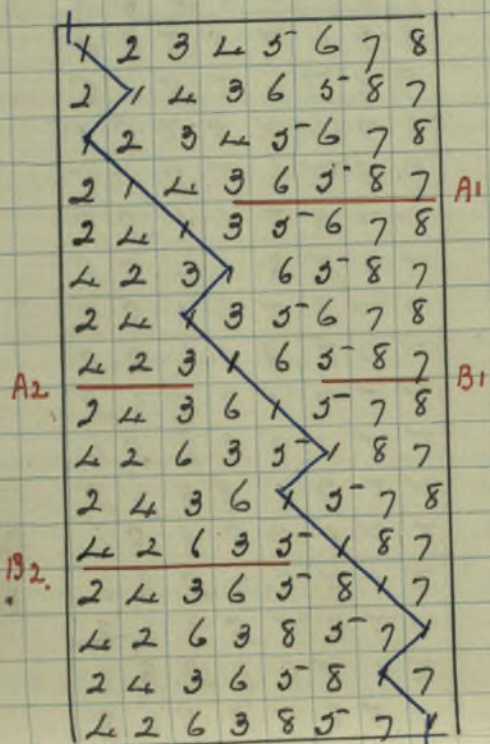 1 2 3 4 5 6 7 8
2 1 4 3 6 5 8 7
1 2 3 4 5 6 7 8
2 1 4 3 6 5 8 7 A1
2 4 1 3 5 6 7 8
4 2 3 1 6 5 8 7
2 4 1 3 5 6 7 8
A2 4 2 3 1 6 5 8 7 B1
2 4 3 6 1 5 7 8
4 2 6 3 5 1 8 7
2 4 3 6 1 5 7 8
B2. 4 2 6 3 5 1 8 7
2 4 3 6 5 8 1 7
4 2 6 3 8 5 7 1
2 4 3 6 5 8 1 7
4 2 6 3 8 5 7 1